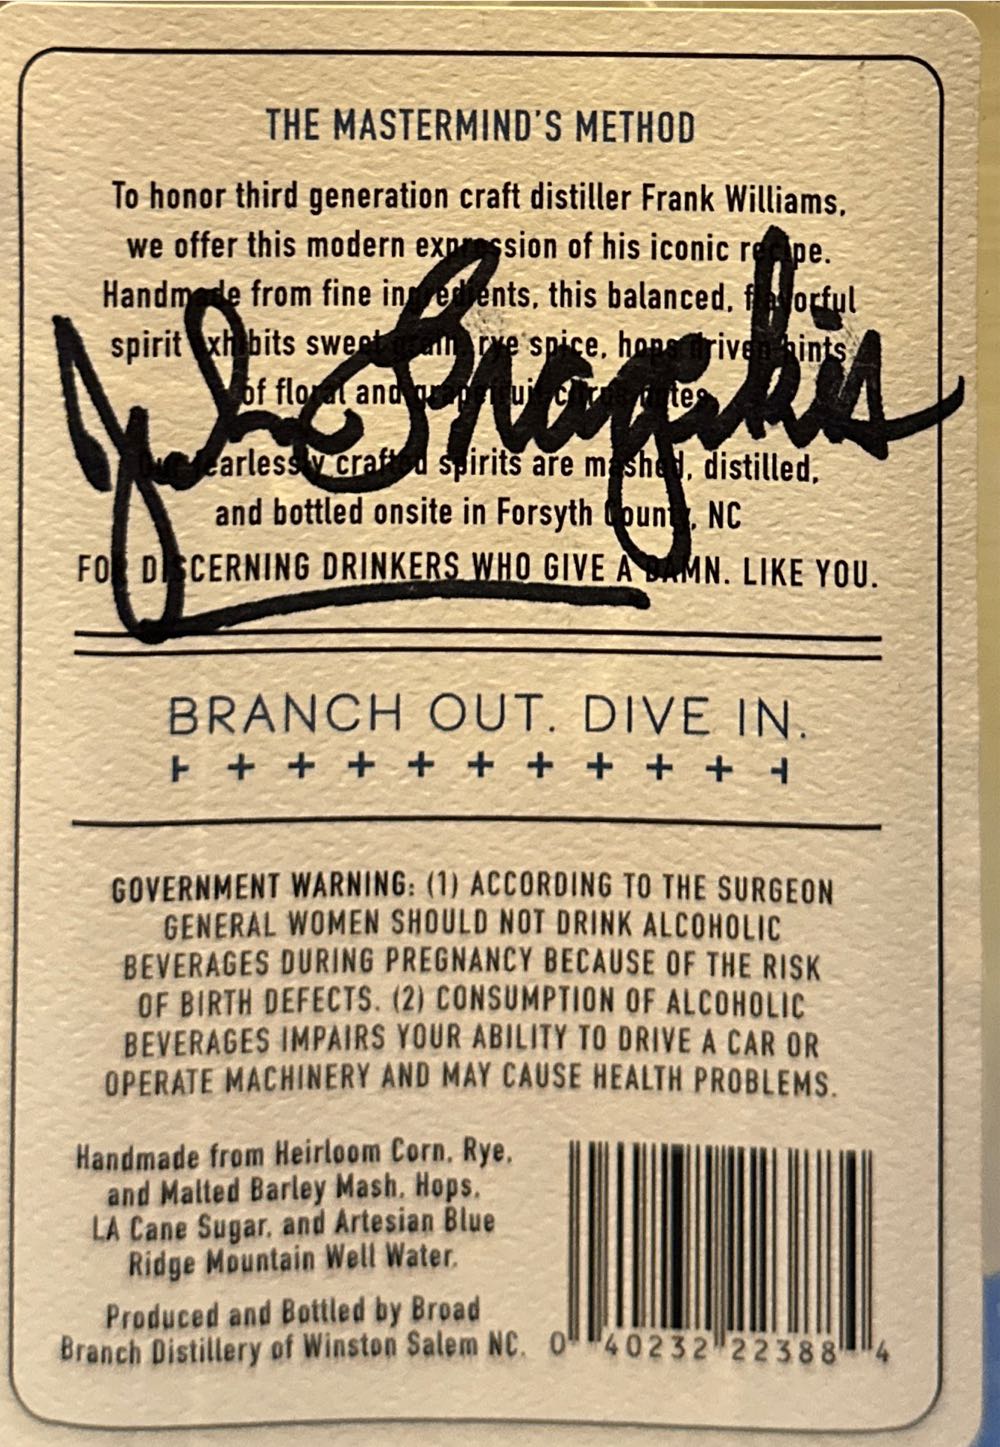 THE MASTERMIND'S METHOD
To honor third generation craft distiller Frank Williams,
we offer this modern expression of his iconic recipe.
Handmade from fine ingredients, this balanced, flavorful
spirit exhibits sweet grain, rye spice, hops driven hints
of floral and grapefruit citrus notes.
Our fearlessly crafted spirits are mashed, distilled,
and bottled onsite in Forsyth County, NC
FOR DISCERNING DRINKERS WHO GIVE A DAMN. LIKE YOU.
BRANCH OUT. DIVE IN.
GOVERNMENT WARNING: (1) ACCORDING TO THE SURGEON
GENERAL WOMEN SHOULD NOT DRINK ALCOHOLIC
BEVERAGES DURING PREGNANCY BECAUSE OF THE RISK
OF BIRTH DEFECTS. (2) CONSUMPTION OF ALCOHOLIC
BEVERAGES IMPAIRS YOUR ABILITY TO DRIVE A CAR OR
OPERATE MACHINERY AND MAY CAUSE HEALTH PROBLEMS.
Handmade from Heirloom Corn, Rye,
and Malted Barley Mash, Hops,
LA Cane Sugar, and Artesian Blue
Ridge Mountain Well Water.
Produced and Bottled by Broad
Branch Distillery of Winston Salem NC.
0 40232 22388 4